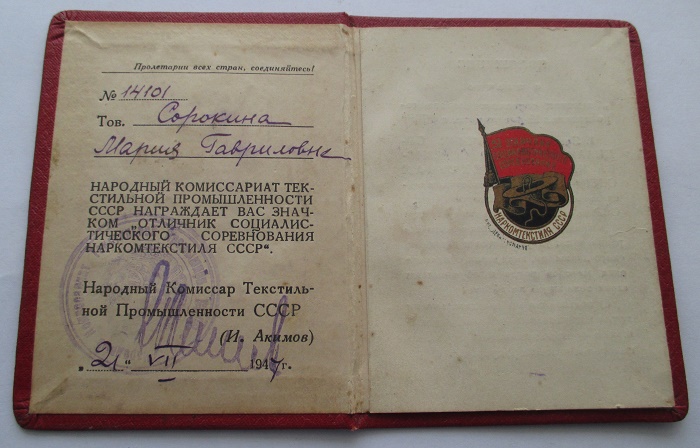 Пролетарии всех стран, соединяйтесь!
№ 14101
Тов. Сорокина
Мария Гавриловна
НАРОДНЫЙ КОМИССАРИАТ ТЕК-
СТИЛЬНОЙ ПРОМЫШЛЕННОСТИ
СССР НАГРАЖДАЕТ ВАС ЗНАЧ-
КОМ „ОТЛИЧНИК СОЦИАЛИС-
ТИЧЕСКОГО СОРЕВНОВАНИЯ
НАРКОМТЕКСТИЛЯ СССР“.
Народный Комиссар Текстиль-
ной Промышленности СССР
(И. Акимов)
„2“ VII 1947г.
НАРКОМТЕКСТИЛЯ СССР